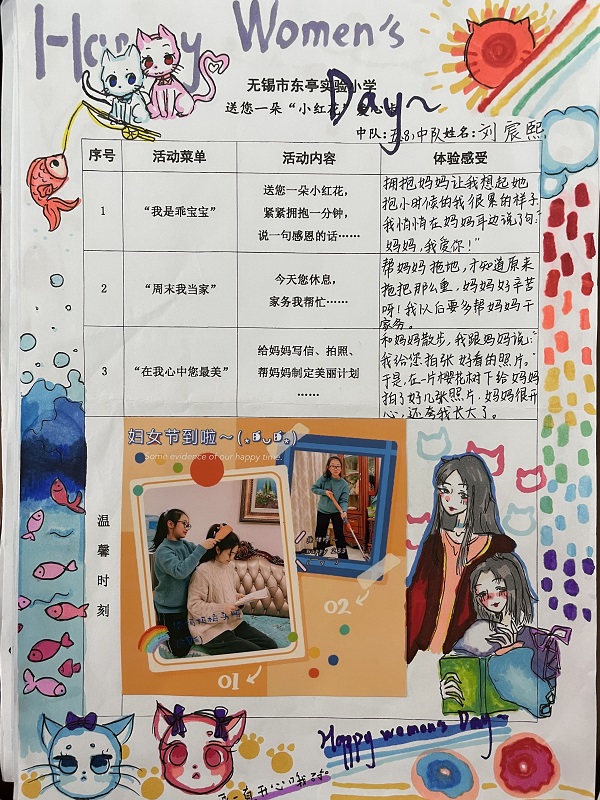 Happy Women's
Day~
无锡市东亭实验小学
送您一朵“小红花”爱心卡
中队:五8中队 姓名:刘宸熙
序号 活动菜单 活动内容 体验感受
1 “我是乖宝宝”
送您一朵小红花,
紧紧拥抱一分钟,
说一句感恩的话……
拥抱妈妈让我想起她
抱小时候的我很累的样子
我悄悄在妈妈耳边说了句:“
妈妈,我爱你!”
2 “周末我当家”
今天您休息,
家务我帮忙……
帮妈妈拖地,才知道原来
拖把那么重,妈妈好辛苦
呀!我以后要多帮妈妈干
家务。
3 “在我心中您最美”
给妈妈写信、拍照、
帮妈妈制定美丽计划
……
和妈妈散步,我跟妈妈说:“
我给您拍张好看的照片。”
于是,在一片樱花树下给妈妈
拍了好几张照片,妈妈很开
心,还夸我长大了。
温馨时刻
妇女节到啦~
Some evidence of our happy time.
02
01
Happy womens Day~
开心